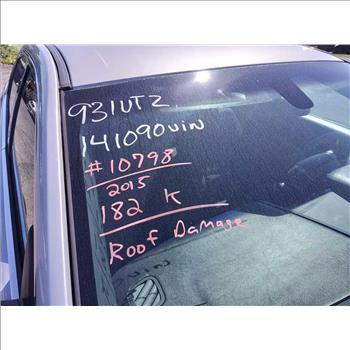 931UTZ
141090vin
#10798
2015
182 K
Roof Damage